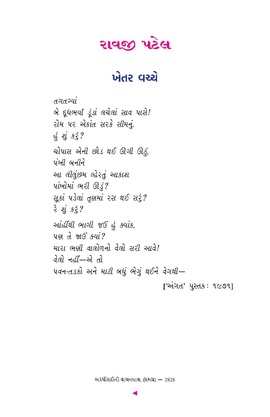 રાવજી પટેલ
ખેતર વચ્ચે
તગતગ્યાં
બે દૂધભર્યા ડૂંડાં લચેલાં સાવ પાસે!
રોમ પર એકાંત સરકે સીમનું.
હું શું કરું?
ચોપાસ એની છોડ થઈ ઊગી ઊઠું,
પંખી બનીને
આ લીલુંછમ લ્હેરતું આકાશ
પાંખોમાં ભરી ઊડું?
સૂકાં પડેલાં તૃણમાં રસ થઈ સરું?
રે શું કરું?
આંહીંથી ભાગી જઈ હું ક્યાંક,
પણ તે જાઉં ક્યાં?
મારા ભણી વાલોળનો વેલો સરી આવે!
વેલો નહીં—એ તો
પવન-તડકો અને માટી બધું ભેગું થઈને વેગથી—
['અંગત' પુસ્તક: ૧૯૭૧]
2026